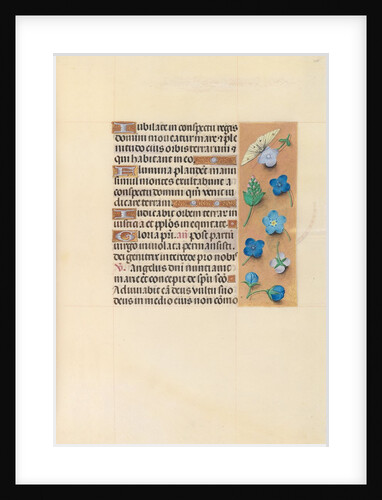 Iubilate in conspectu regis
domini moueatur mare & ple
nitudo eius orbis terrarum &
qui habitant in eo
Flumina plaudent manu
simul montes exultabunt a
conspectu domini qm̄ venit iu
dicare terram
Iudicabit orbem terrarum in
iusticia et pplos in equitate
Gloria pri. an̄ Post partū
uirgo inuiolata permansisti
dei genitrix intercede pro nobis
V. Angelus dni nunciauit
marie et concepit de spū scō
Adiuuabit eā deus vultu suo
deus in medio eius non cōmo